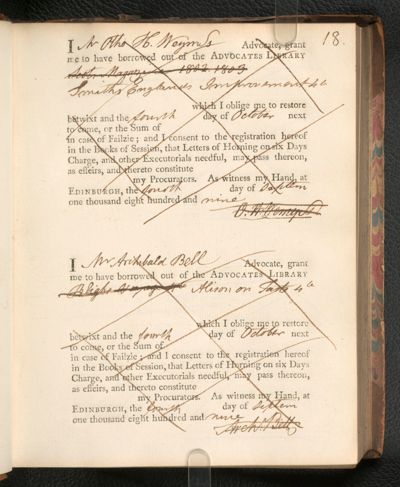 18.
I Mr Otho H. Wemyss Advocate, grant
me to have borrowed out of the ADVOCATES LIBRARY
Scots Magazine 1802 1803
Smiths Englands Improvement 4to
which I oblige me to restore
betwixt and the fourth day of October next
to come, or the Sum of
in case of Failzie; and I consent to the registration hereof
in the Books of Session, that Letters of Horning on six Days
Charge, and other Executorials needful, may pass thereon,
as effeirs, and thereto constitute
my Procurators. As witness my Hand, at
EDINBURGH, the fourth day of Septem
one thousand eight hundred and nine
O. H. Wemyss
I Mr Archibald Bell Advocate, grant
me to have borrowed out of the ADVOCATES LIBRARY
Blighs Voyage Alison on Taste 4to
which I oblige me to restore
betwixt and the fourth day of October next
to come, or the Sum of
in case of Failzie; and I consent to the registration hereof
in the Books of Session, that Letters of Horning on six Days
Charge, and other Executorials needful, may pass thereon,
as effeirs, and thereto constitute
my Procurators. As witness my Hand, at
EDINBURGH, the fourth day of Septem
one thousand eight hundred and nine
Archd Bell